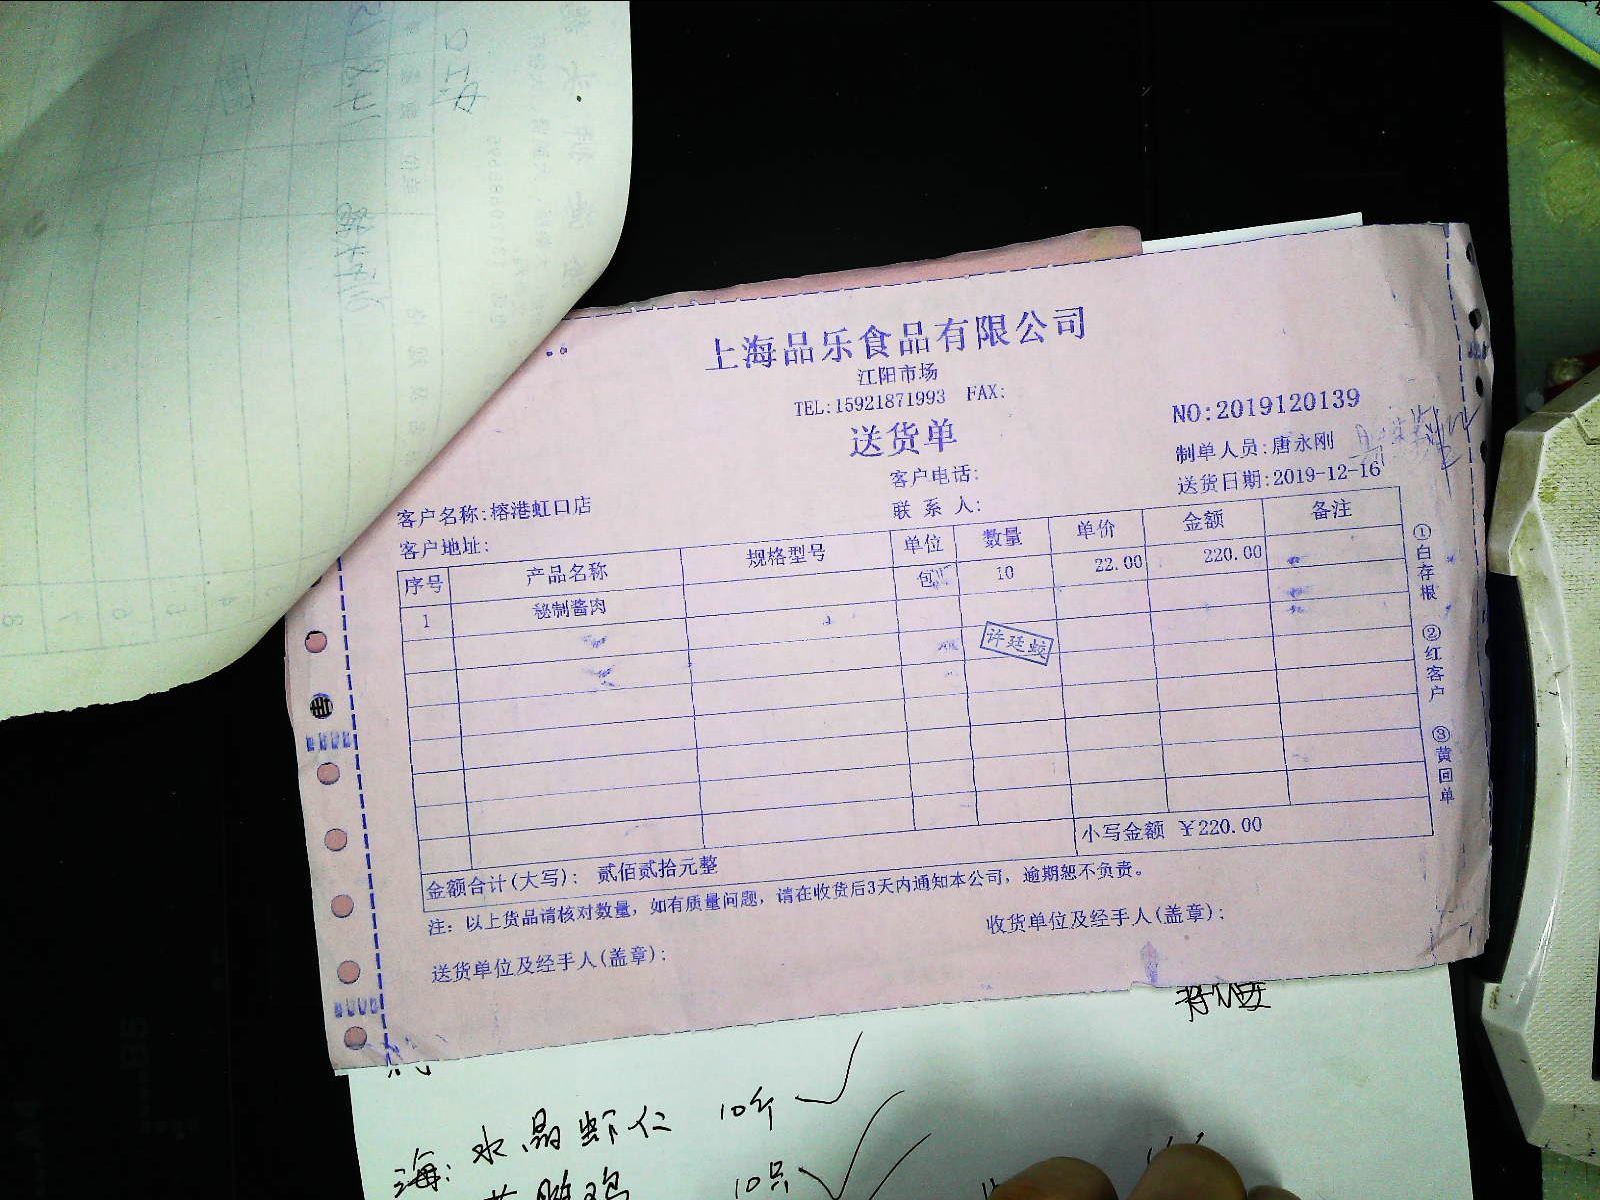 上海品乐食品有限公司
江阳市场
TEL:15921871993 FAX:
送货单
NO:2019120139
制单人员:唐永刚
送货日期:2019-12-16
客户电话:
联 系 人:
客户名称:榕港虹口店
客户地址:
序号 产品名称 规格型号 单位 数量 单价 金额 备注
1 秘制酱肉 包 10 22.00 220.00
许廷蛟
小写金额 ￥220.00
金额合计(大写): 贰佰贰拾元整
注: 以上货品请核对数量, 如有质量问题, 请在收货后3天内通知本公司, 逾期恕不负责。
送货单位及经手人(盖章):
收货单位及经手人(盖章):
①白存根 ②红客户 ③黄回单
海: 水晶虾仁 10斤
10只